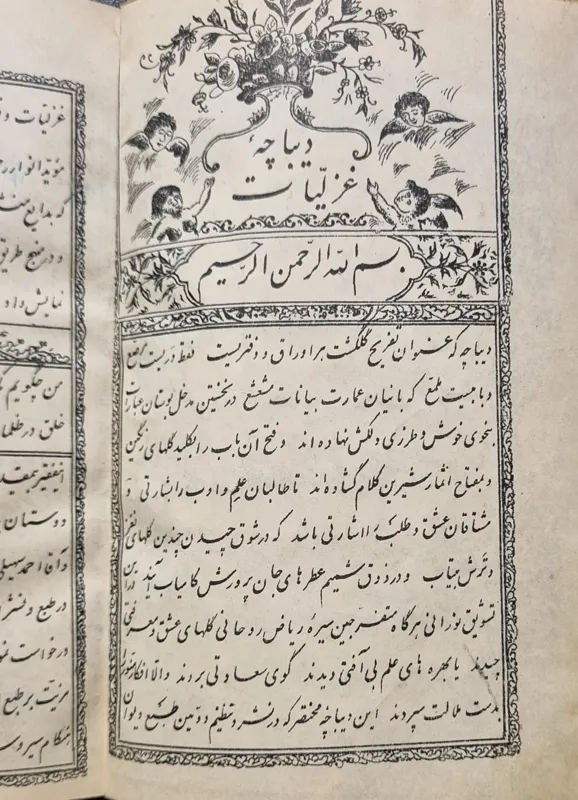 دیباچهٔ
غزلیّات
بسم الله الرّحمن الرّحیم
دیباچه که عنوان تفریح گلگشت هر اوراق و دفتریست فقط دریست
و بامیست ملمّع که بانیان عمارت بیانات مشعشع در نخستین مدخل بوستان عبارات
بنحوی خوش و طرزی دلکش نهاده‌اند و فتح آن باب را بکلید گلهای رنگین
و بمفتاح اثمار شیرین کلام گشاده‌اند تا طالبان علم و ادب را بشارتی و
مشتاقان عشق و طلب را اشارتی باشد که در شوق چیدن چنین گلهای نغز
و ترش بیتاب و در ذوق شمیم عطرهای جان پرورش کامیاب آیند در این
تشویق نورانی هرگاه متفرجین سیرهٔ ریاض روحانی گلهای عشق و معرفتی
چیدند یا بهره‌های علم بی آفتی دیدند گوی سعادتی بردند والا افکار
بدست ملالت سپردند این دیباچه مختصر که در نشر و تنظیم دومین طبع دیوان
غزلیات و
مؤید انوار
که بدایع
و در نهج طریق
نمایش داد
من چگویم
خلق در ظلما
اینفقیر بمقید
دوستان
و آقا احمد سهیلی
در طبع و نشر
درخواست نمو
مزیّت بر طبع
هنگام سیر و